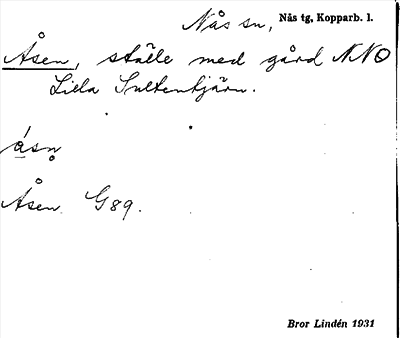 Nås sn, Nås tg, Kopparb. l.
Åsen, ställe med gård NNO
Lilla Sultentjärn.
åsn̥
Åsen. G89.
Bror Lindén 1931